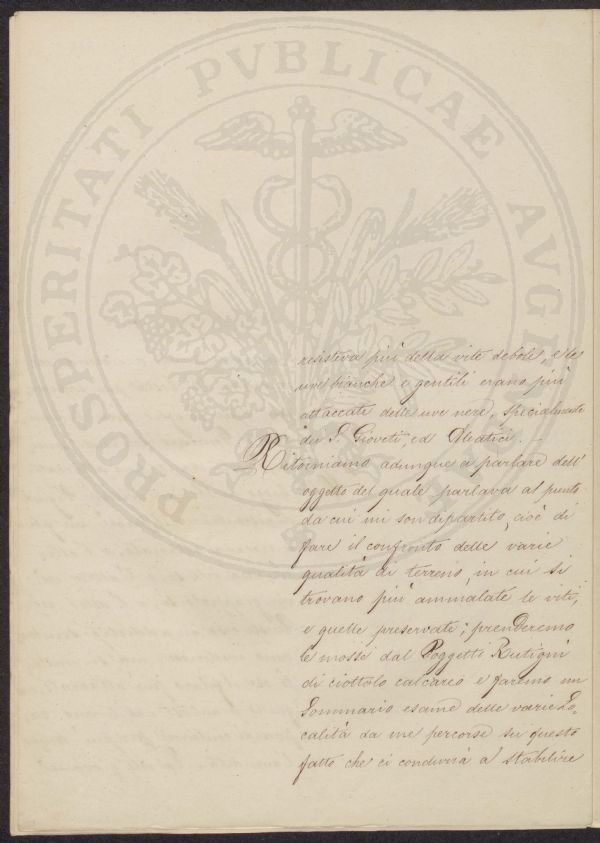 PROSPERITATI PVBLICAE AVGENDAE
resisteva più della vite debole, e le
uve bianche e gentili erano più
attaccate delle uve nere, specialmente
dei S. Gioveti, ed Aleatici. —
Ritorniamo adunque a parlare dell'
oggetto del quale parlava al punto
da cui mi son dipartito, cioè di
fare il confronto delle varie
qualità di terreno, in cui si
trovano più ammalate le viti,
e quelle preservate; prenderemo
le mosse dal Poggetti Rutigni
di ciottolo calcareo e faremo un
Sommario esame delle varie Lo-
calità da me percorse su questo
fatto che ci condurrà a stabilire